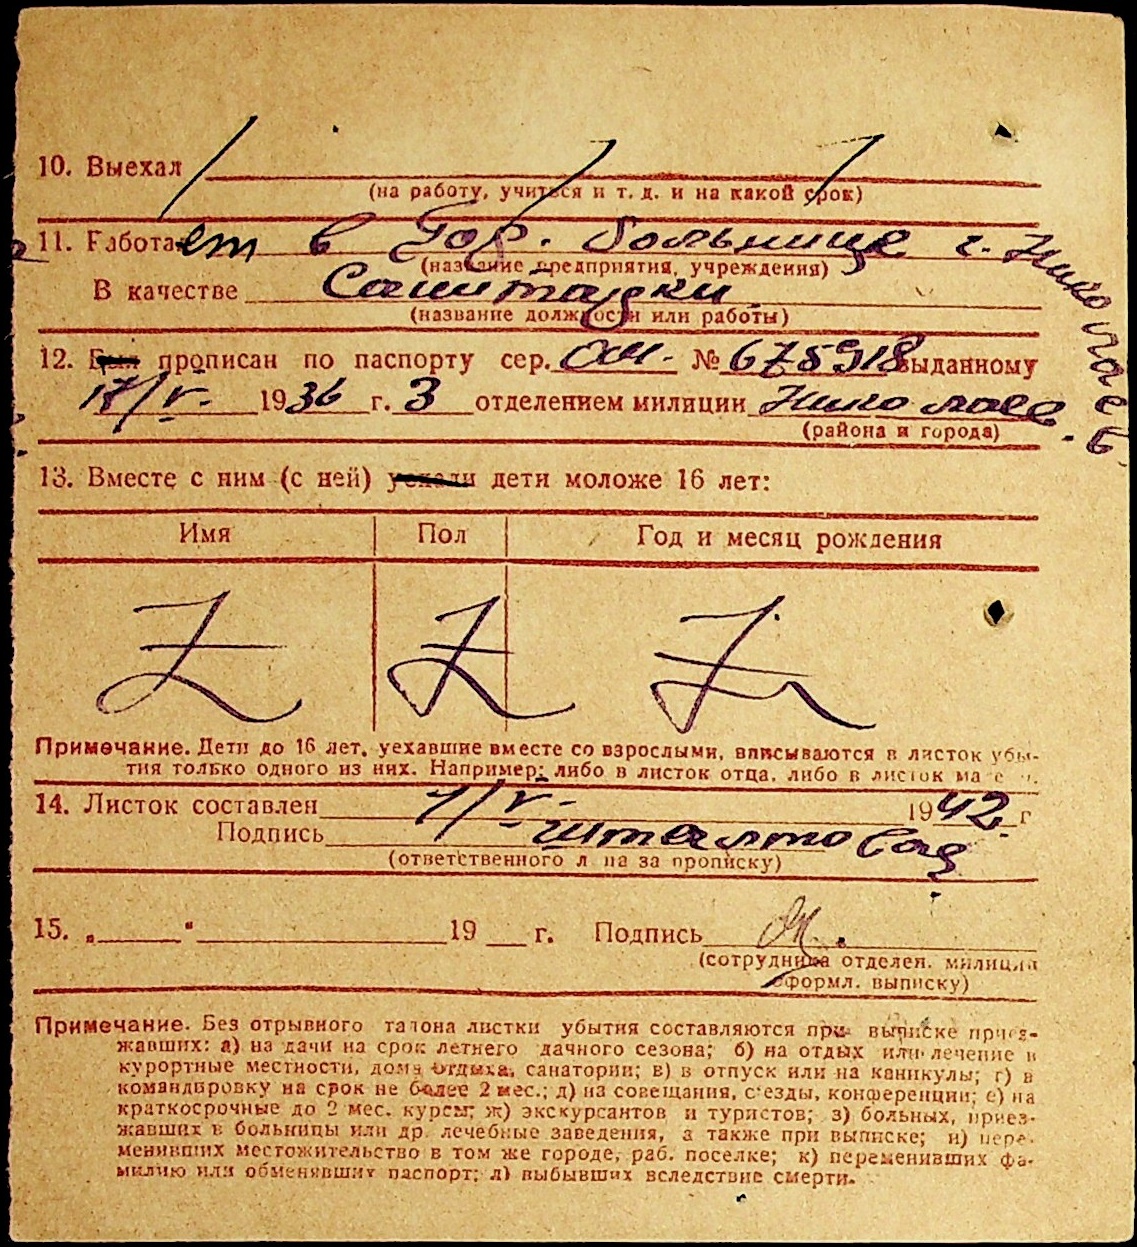 10. Выехал
(на работу, учиться и т. д. и на какой срок)
11. Работает в Гор. больнице г. Николаев.
(название предприятия, учреждения)
В качестве Санитарки
(название должности или работы)
12. Был прописан по паспорту сер. № 675918 выданному
17/V. 1936 г. 3 отделением милиции Николаев.
(района и города)
13. Вместе с ним (с ней) уехали дети моложе 16 лет:
Имя Пол Год и месяц рождения
Z Z Z
Примечание. Дети до 16 лет, уехавшие вместе со взрослыми, вписываются в листок убы-
тия только одного из них. Например: либо в листок отца, либо в листок
14. Листок составлен 1/V- 1942 г
Подпись
(ответственного лица за прописку)
15. „ " 19 г. Подпись
(сотрудника отделен. милиции
оформл. выписку)
Примечание. Без отрывного талона листки убытия составляются при выписке приез-
жавших: а) на дачи на срок летнего дачного сезона; б) на отдых или лечение в
курортные местности, дома отдыха, санатории; в) в отпуск или на каникулы; г) в
командировку на срок не более 2 мес.; д) на совещания, съезды, конференции; е) на
краткосрочные до 2 мес. курсы; ж) экскурсантов и туристов; з) больных, приез-
жавших в больницы или др. лечебные заведения, а также при выписке; и) пере-
менивших местожительство в том же городе, раб. поселке; к) переменивших фа-
милию или обменявших паспорт; л) выбывших вследствие смерти.